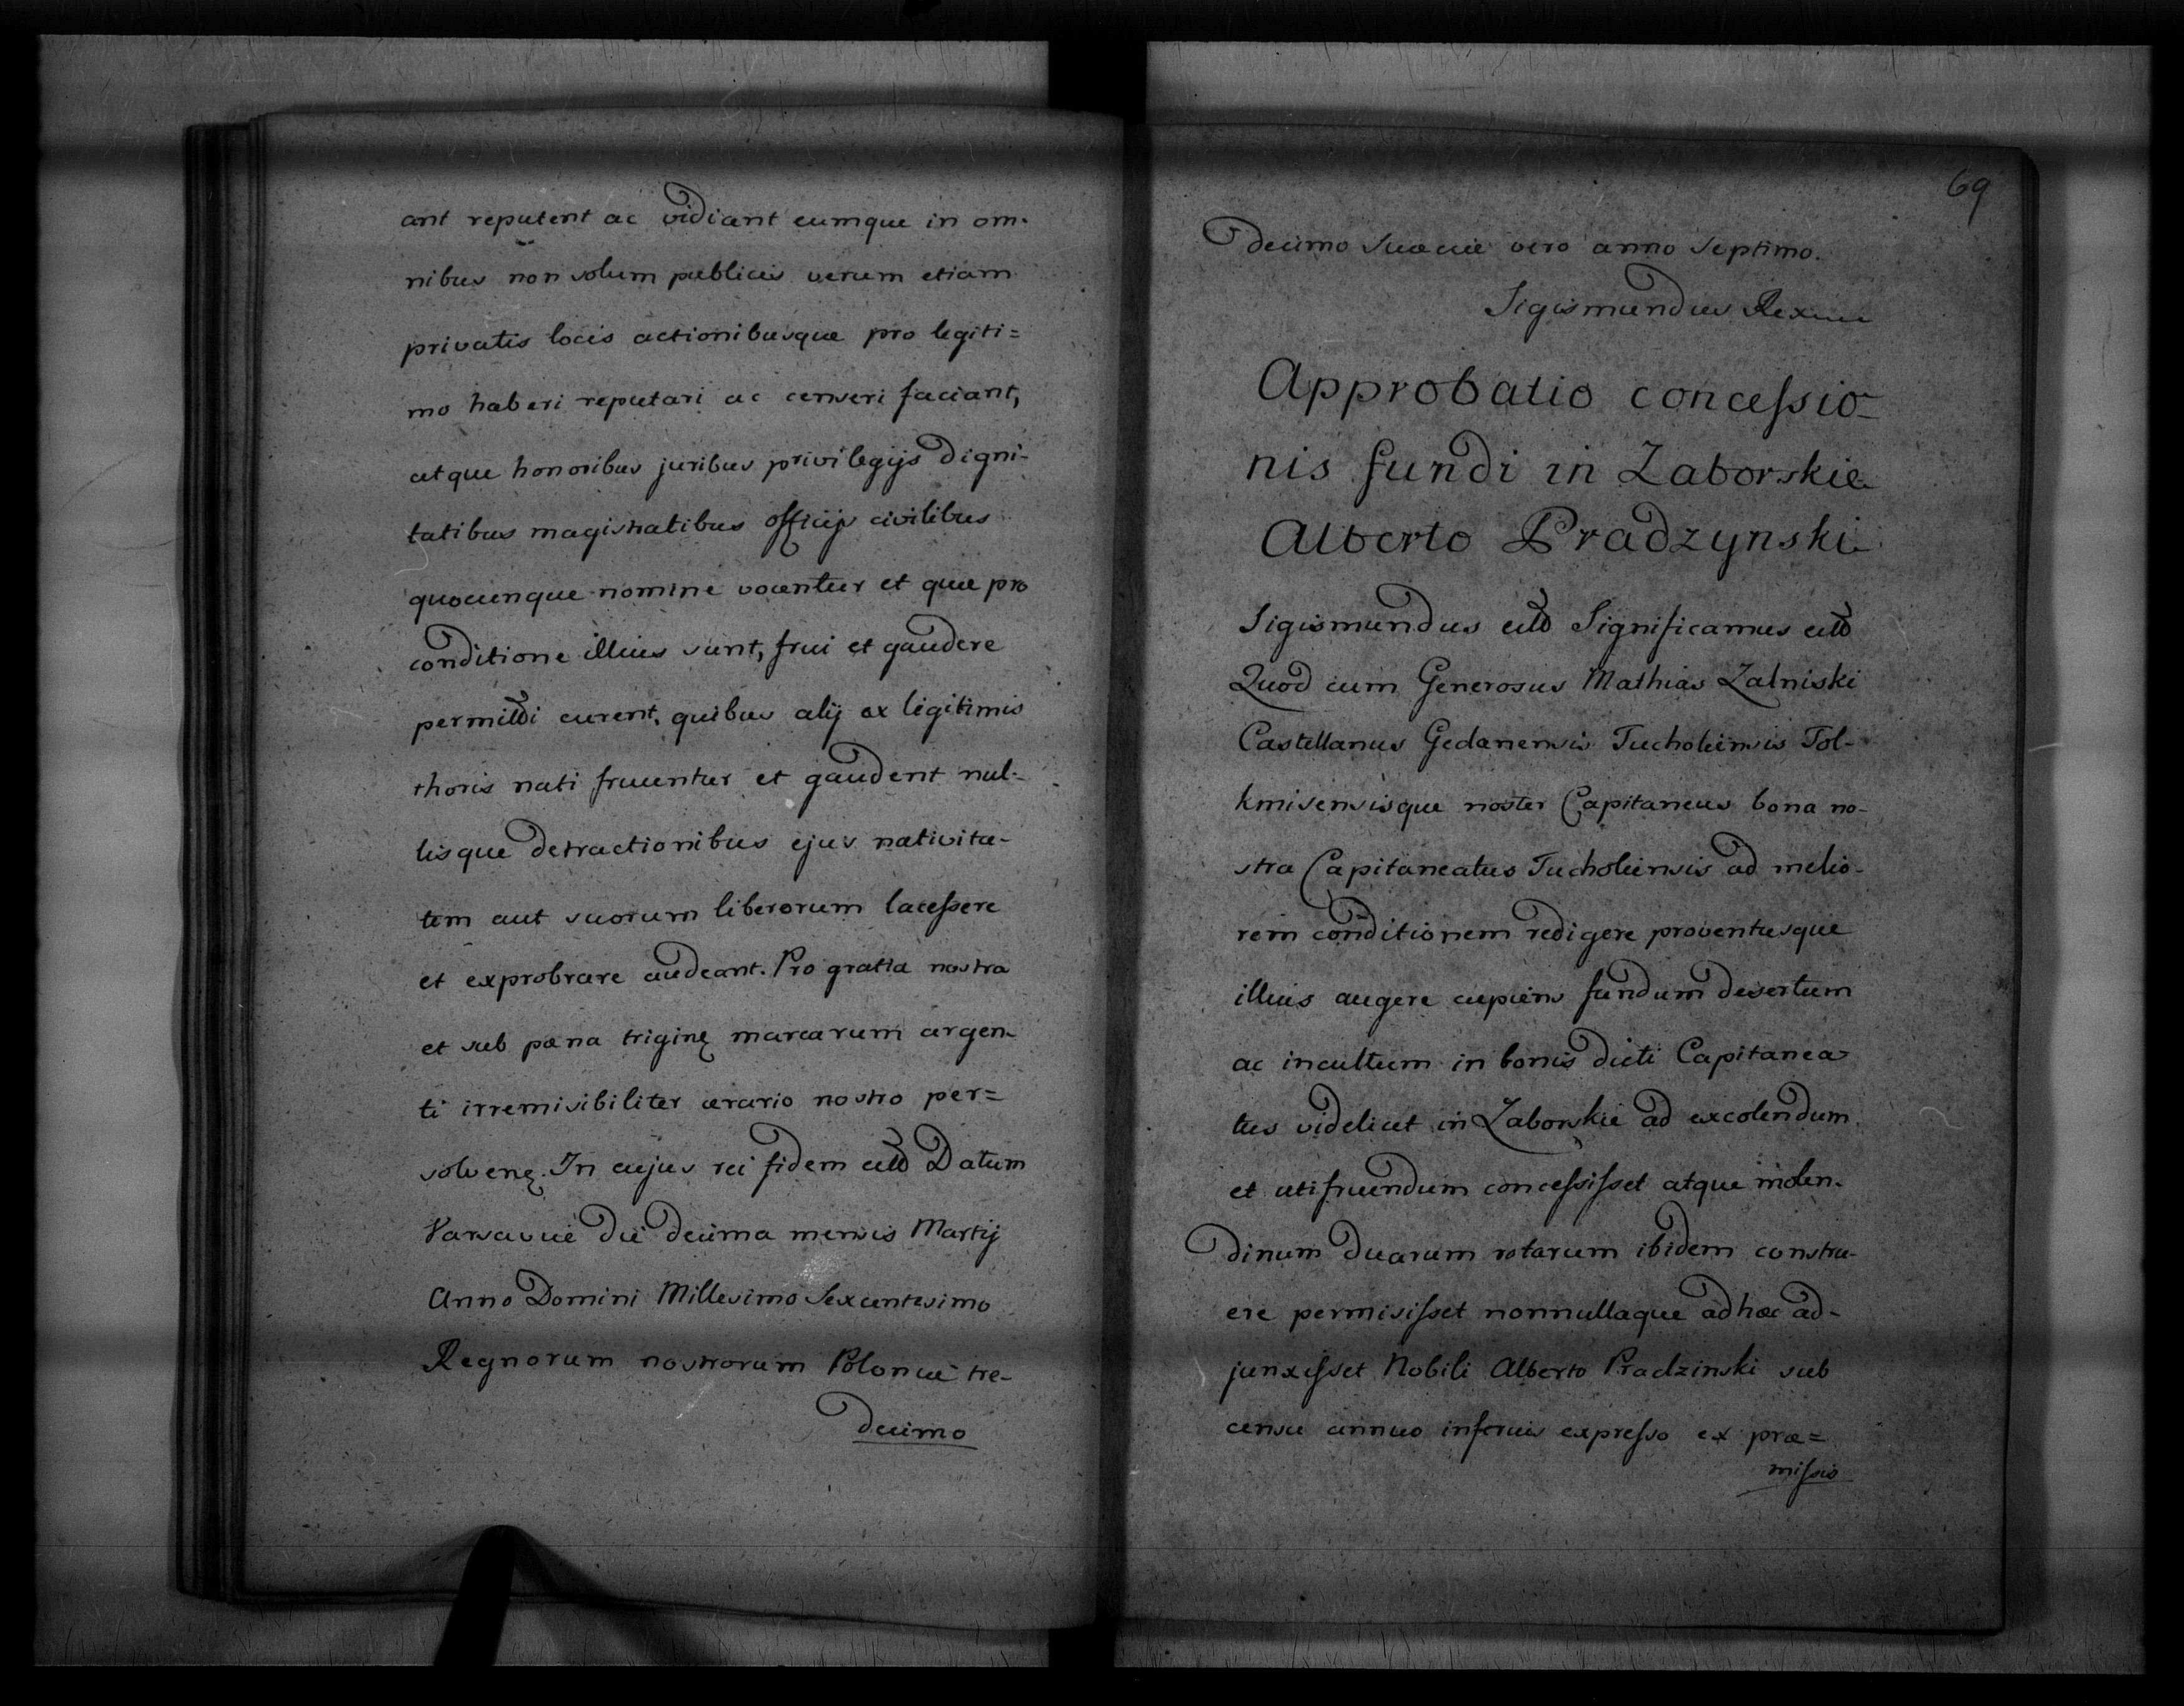 ant reputent ac vidiant eumque in om-
nibus non solum publicis verum etiam
privatis locis actionibusque pro legiti=
mo haberi reputari ac censeri faciant,
atque honoribus juribus privilegijs digni-
tatibus magistratibus officijs civilibus
quocunque nomine vocentur et quæ pro
conditione illius sunt, frui et gaudere
permitti curent, quibus alij ex legitimis
thoris nati fruuntur et gaudent nul-
lisque detractionibus ejus nativita-
tem aut suorum liberorum lacessere
et exprobrare audeant. Pro gratia nostra
et sub pæna trigintę marcarum argen-
ti irremisibiliter ærario nostro per=
solvenę. In cujus rei fidem etc Datum
Varsaviæ die decima mensis Martij
Anno Domini Millesimo Sexcentesimo
Regnorum nostrorum Poloniæ tre-
decimo
69
decimo Sueciæ vero anno septimo.
Sigismundus Rex
Approbatio concessio=
nis fundi in Zaborskie
Alberto Pradzynski
Sigismundus etc Significamus etc
Quod cum Generosus Mathias Zalniski
Castellanus Gedanensis Tucholiensis Tol-
kmisensisque noster Capitaneus bona no-
stra Capitaneatus Tucholiensis ad melio-
rem conditionem redigere proventusque
illius augere cupiens fundum desertum
ac incultum in bonis dicti Capitanea-
tus videlicet in Zaborskie ad excolendum
et utifruendum concessisset atque molen-
dinum duarum rotarum ibidem constru-
ere permisisset nonnullaque ad hæc ad-
junxisset Nobili Alberto Pradzinski sub
censu annuo inferius expresso ex præ=
missis